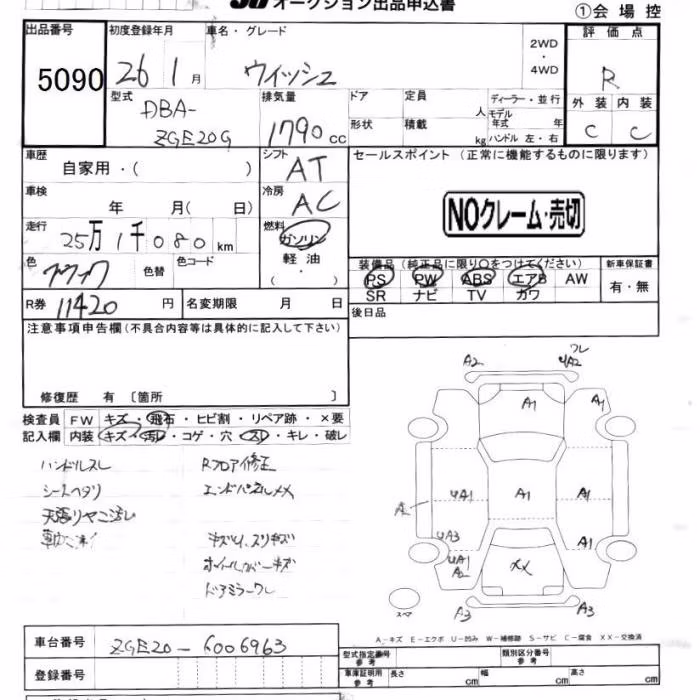 オークション出品申込書
①会場控
出品番号 初度登録年月 車名・グレード 2WD・4WD 評価点
5090 26 1月 ウイッシュ R
型式 排気量 ドア 定員 人 ディーラー・並行 外装 内装
DBA-ZGE20G 1790cc 形状 積載 kg モデル年式 年 ハンドル 左・右 C C
車歴 自家用・( ) シフト AT セールスポイント (正常に機能するものに限ります)
車検 年 月( 日) 冷房 AC NOクレーム・売切
走行 25万1千080km 燃料 ガソリン 軽油・( )
色 色替 色コード 装備品 (純正品に限り○をつけてください) 新車保証書
PS PW ABS エアB AW 有・無
SR ナビ TV カワ
R券 11420円 名変期限 月 日 後日品
注意事項申告欄(不具合内容等は具体的に記入して下さい)
修復歴 有〔箇所 〕
検査員 FW キズ・飛石・ヒビ割・リペア跡・×要
記入欄 内装 キズ・汚れ・コゲ・穴・スレ・キレ・破レ
ハンドルスレ Rフロア修正
シートヘタリ エンドパネルメメ
キズ凹、スリキズ
ホイルカバーキズ
ドアミラーワレ
A2 UA2 ワレ
A1 A1
UA1 A1 A1
UA3 A1
UA1 A2 XX
A3 A3
スペア
A-キズ E-エクボ U-凹み W-補修跡 S-サビ C-腐食 XX-交換済
車台番号 ZGE20-6006963
型式指定番号 参考 類別区分番号 参考
登録番号 車庫証明用 参考 長さ cm 幅 cm 高さ cm